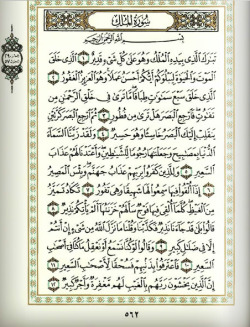 سُورَةُ المُلْكِ
بِسْمِ ٱللَّهِ ٱلرَّحْمَٰنِ ٱلرَّحِيمِ
تَبَٰرَكَ ٱلَّذِى بِيَدِهِ ٱلْمُلْكُ وَهُوَ عَلَىٰ كُلِّ شَىْءٍ قَدِيرٌ ١ ٱلَّذِى خَلَقَ
ٱلْمَوْتَ وَٱلْحَيَوٰةَ لِيَبْلُوَكُمْ أَيُّكُمْ أَحْسَنُ عَمَلًا وَهُوَ ٱلْعَزِيزُ ٱلْغَفُورُ ٢
ٱلَّذِى خَلَقَ سَبْعَ سَمَٰوَٰتٍ طِبَاقًا مَّا تَرَىٰ فِى خَلْقِ ٱلرَّحْمَٰنِ مِن
تَفَٰوُتٍ فَٱرْجِعِ ٱلْبَصَرَ هَلْ تَرَىٰ مِن فُطُورٍ ٣ ثُمَّ ٱرْجِعِ ٱلْبَصَرَ كَرَّتَيْنِ
يَنقَلِبْ إِلَيْكَ ٱلْبَصَرُ خَاسِئًا وَهُوَ حَسِيرٌ ٤ وَلَقَدْ زَيَّنَّا ٱلسَّمَآءَ
ٱلدُّنْيَا بِمَصَٰبِيحَ وَجَعَلْنَٰهَا رُجُومًا لِّلشَّيَٰطِينِ وَأَعْتَدْنَا لَهُمْ عَذَابَ
ٱلسَّعِيرِ ٥ وَلِلَّذِينَ كَفَرُوا۟ بِرَبِّهِمْ عَذَابُ جَهَنَّمَ وَبِئْسَ ٱلْمَصِيرُ
٦ إِذَآ أُلْقُوا۟ فِيهَا سَمِعُوا۟ لَهَا شَهِيقًا وَهِىَ تَفُورُ ٧ تَكَادُ تَمَيَّزُ
مِنَ ٱلْغَيْظِ كُلَّمَآ أُلْقِىَ فِيهَا فَوْجٌ سَأَلَهُمْ خَزَنَتُهَآ أَلَمْ يَأْتِكُمْ نَذِيرٌ ٨
قَالُوا۟ بَلَىٰ قَدْ جَآءَنَا نَذِيرٌ فَكَذَّبْنَا وَقُلْنَا مَا نَزَّلَ ٱللَّهُ مِن شَىْءٍ إِنْ أَنتُمْ
إِلَّا فِى ضَلَٰلٍ كَبِيرٍ ٩ وَقَالُوا۟ لَوْ كُنَّا نَسْمَعُ أَوْ نَعْقِلُ مَا كُنَّا فِىٓ أَصْحَٰبِ
ٱلسَّعِيرِ ١٠ فَٱعْتَرَفُوا۟ بِذَنۢبِهِمْ فَسُحْقًا لِّأَصْحَٰبِ ٱلسَّعِيرِ ١١
إِنَّ ٱلَّذِينَ يَخْشَوْنَ رَبَّهُم بِٱلْغَيْبِ لَهُم مَّغْفِرَةٌ وَأَجْرٌ كَبِيرٌ ١٢
٥٦٢